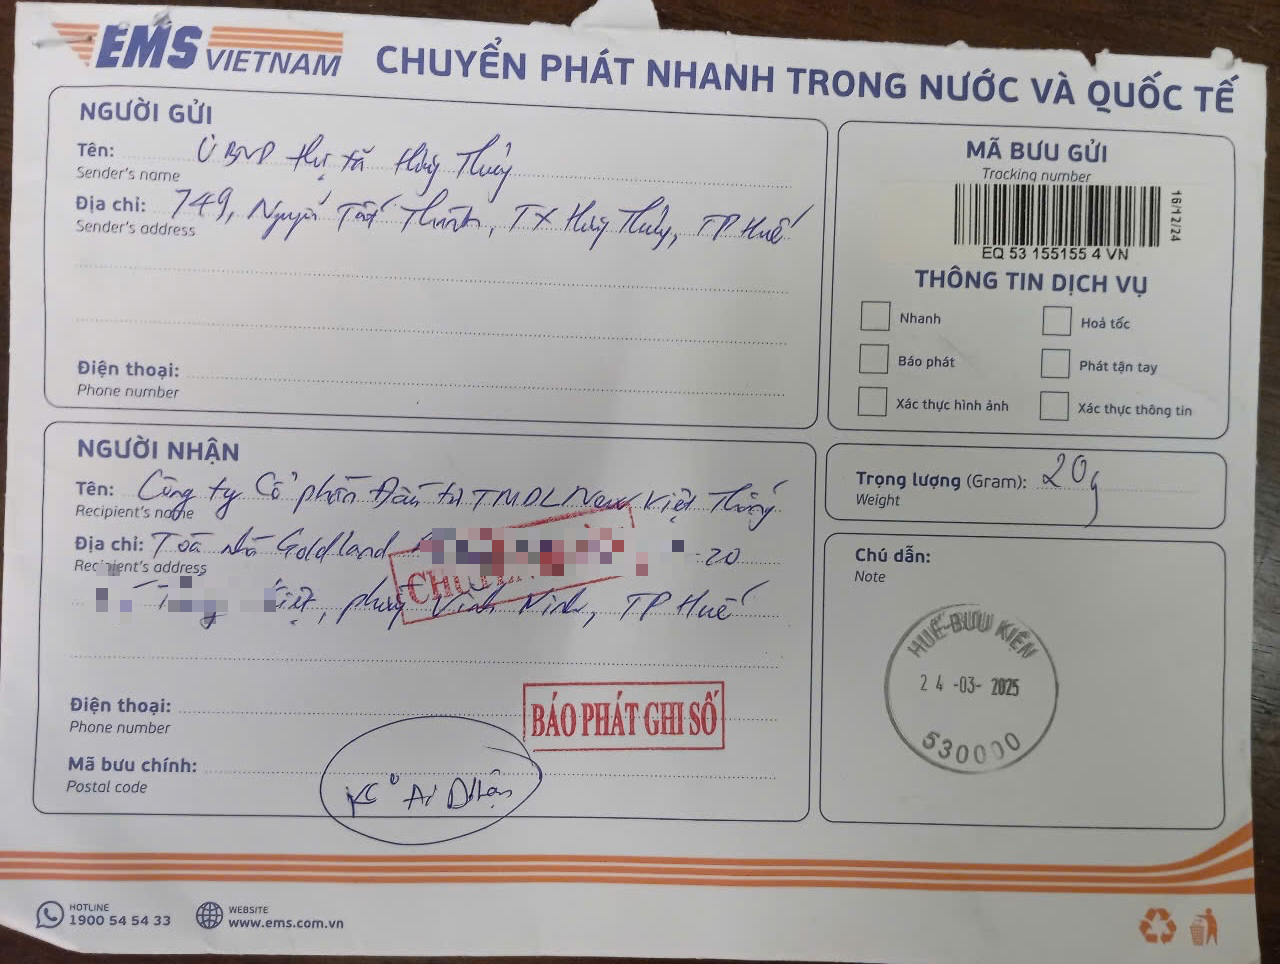 EMS VIETNAM
CHUYỂN PHÁT NHANH TRONG NƯỚC VÀ QUỐC TẾ
NGƯỜI GỬI
Tên: UBND thị xã Hương Thủy
Sender's name
Địa chỉ: 749, Nguyễn Tất Thành, TX Hương Thủy, TP Huế
Sender's address
Điện thoại:
Phone number
MÃ BƯU GỬI
Tracking number
16/12/24
EQ 53 155155 4 VN
THÔNG TIN DỊCH VỤ
Nhanh
Hoả tốc
Báo phát
Phát tận tay
Xác thực hình ảnh
Xác thực thông tin
NGƯỜI NHẬN
Tên: Công ty Cổ phần Đầu tư TMDL New Việt Thống
Recipient's name
Địa chỉ: Toà nhà Goldland 20
Recipient's address
phường Vĩnh Ninh, TP Huế
Điện thoại:
Phone number
BÁO PHÁT GHI SỐ
Mã bưu chính:
Postal code
Ai Nhận
Trọng lượng (Gram): 20g
Weight
Chú dẫn:
Note
HUẾ-BƯU KIỆN
24-03-2025
530000
HOTLINE
1900 54 54 33
WEBSITE
www.ems.com.vn